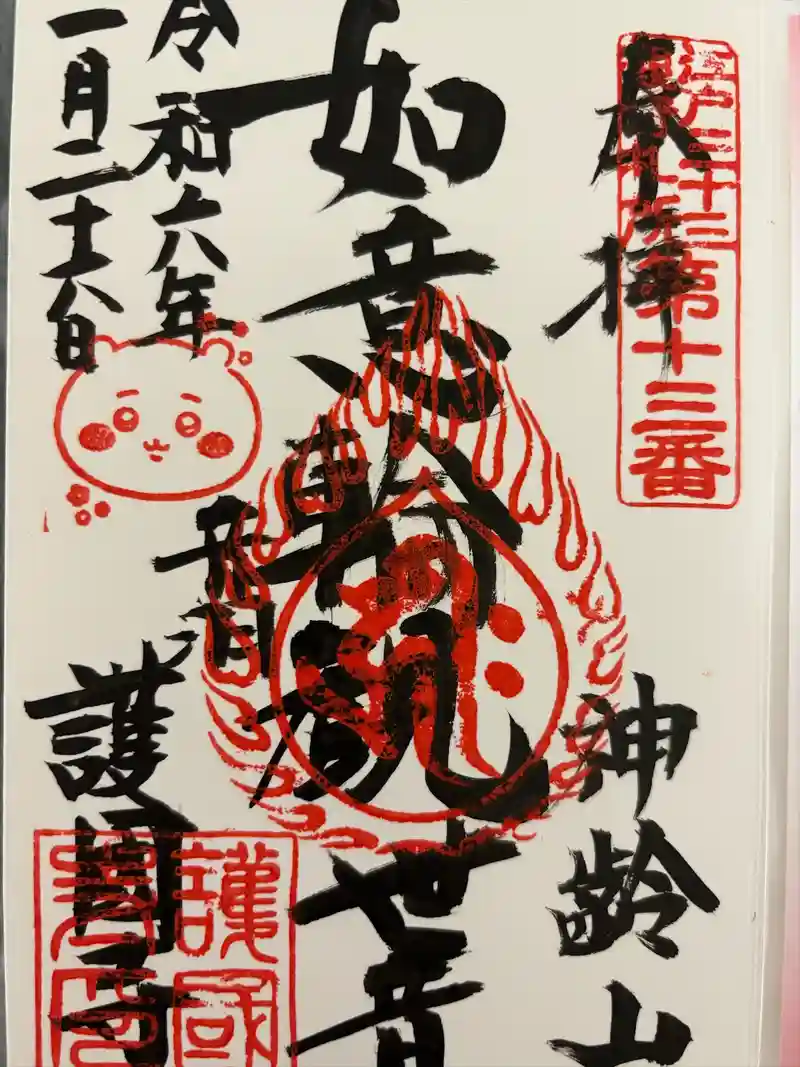 奉拝
江戸三十三
観音札所
第十三番
神齢山
如意輪観世音
令和六年
一月二十八日
音羽
護国寺
護國
寺印